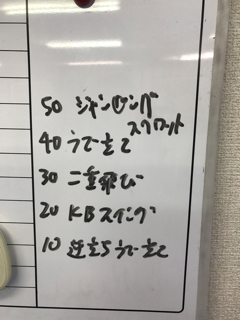 50 ジャンピング
スクワット
40 うで立て
30 二重飛び
20 KBスイング
10 逆立ちうで立て